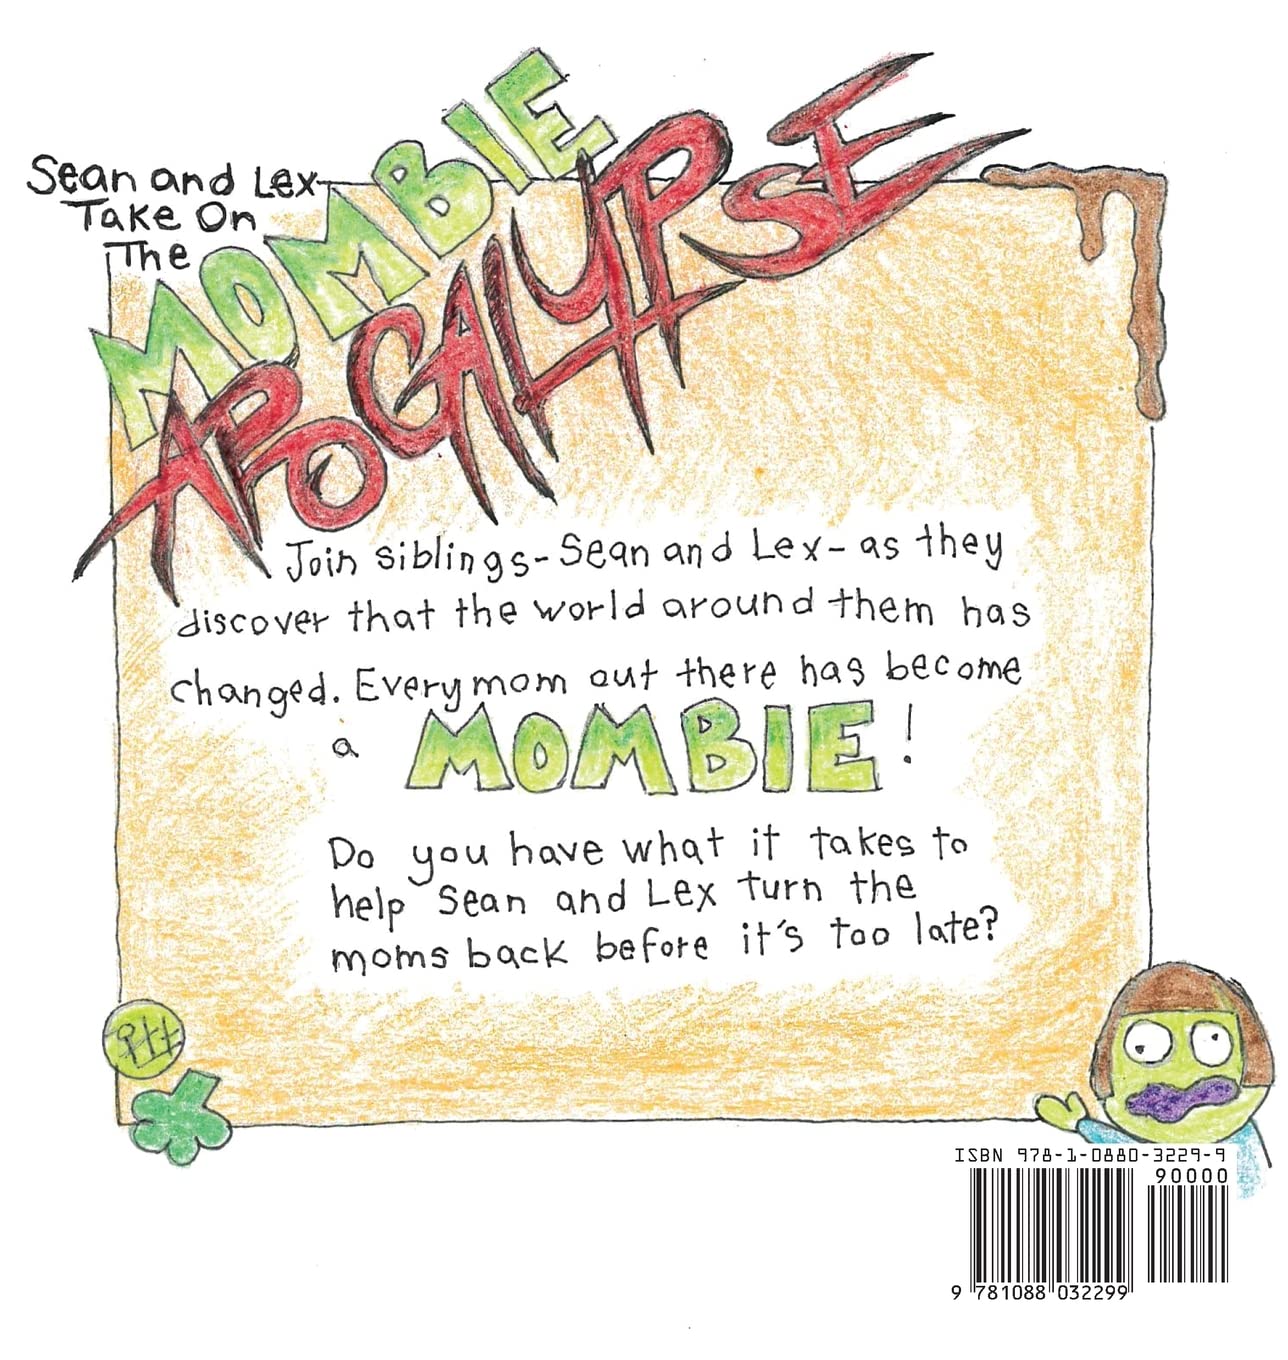 Sean and Lex
Take On
The
MOMBIE
APOCALYPSE
Join siblings-Sean and Lex-as they
discover that the world around them has
changed. Every mom out there has become
a MOMBIE!
Do you have what it takes to
help Sean and Lex turn the
moms back before it's too late?
ISBN 978-1-0880-3229-9
90000
9 781088 032299